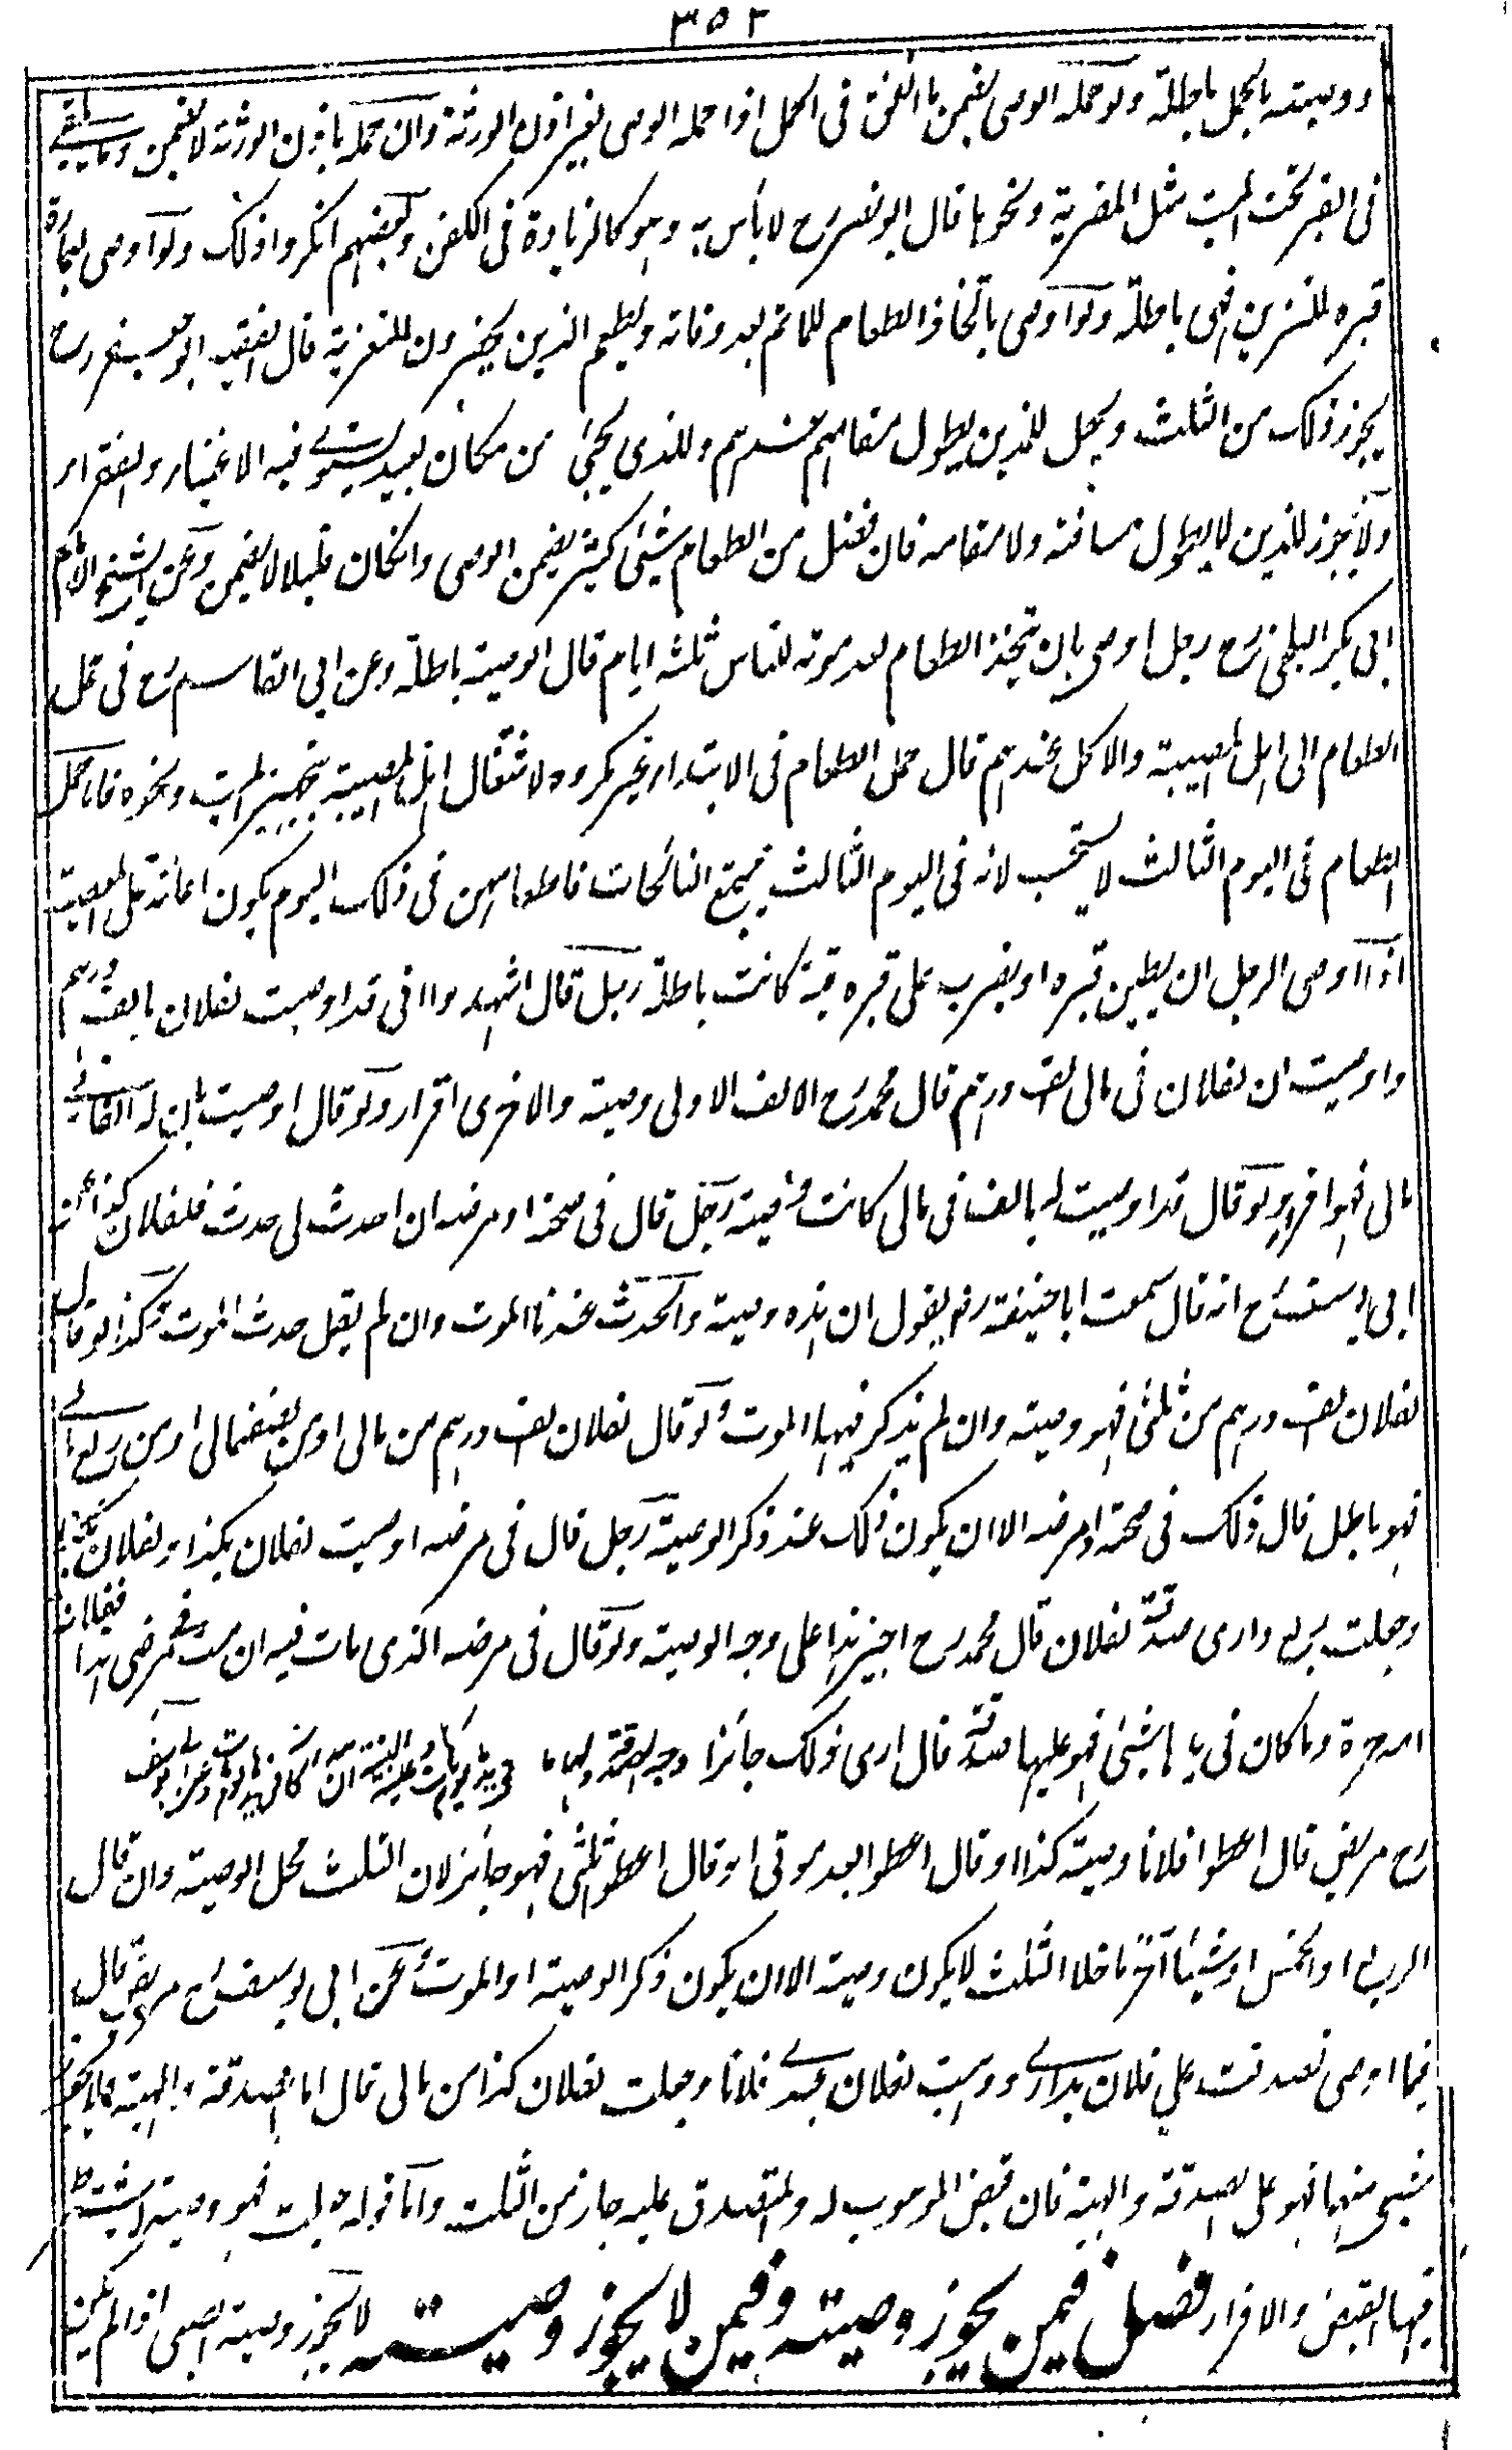 ٣٥٢
ووصيته بالحمل باطلة ولو حمله الوصى يضمن ما انفق فى الحمل اذا حمله الوصى بغير اذن الورثة وان حمله باذن الورثة لا يضمن وما يلقى
فى القبر تحت الميت مثل المضربة ونحوها قال ابو نصر رح لا بأس به وهو كالزيادة فى الكفن وبعضهم انكروا ذلك ولو اوصى بعمارة
قبره للتزيين فهى باطلة ولو اوصى باتخاذ الطعام للماتم بعد وفاته ويطعم الذين يحضرون للتعزية قال الفقيه ابو جعفر رح
يجوز ذلك من الثلث ويحل للذين يطول مقامهم عندهم وللذى يجئ من مكان بعيد يستوى فيه الاغنياء والفقراء
ولا يجوز للذين لا يطول مسافته ولا مقامه فان فضل من الطعام شيئ كثير يضمن الوصى وانكان قليلا لا يضمن وعن الشيخ الامام
ابى بكر البلخى رح رجل اوصى بان يتخذ الطعام بعد موته للناس ثلثة ايام قال الوصية باطلة وعن ابى القاسم رح فى حمل
الطعام الى اهل المصيبة والاكل عندهم قال حمل الطعام فى الابتداء غير مكروه لاشتغال اهل المصيبة بتجهيز الميت ونحوه فاما حمل
الطعام فى اليوم الثالث لا يستحب لانه فى اليوم الثالث يجتمع النائحات فاطعامهن فى ذلك اليوم يكون اعانة على المعصية
اذا اوصى الرجل ان يطين قبره او يضرب على قبره قبة كانت باطلة رجل قال اشهدوا انى قد اوصيت لفلان بالف درهم
واوصيت ان لفلان فى مالى الف درهم قال محمد رح الالف الاولى وصية والاخرى اقرار ولو قال اوصيت بان له الفا فى
مالى فهو اقرار ولو قال قد اوصيت له بالف فى مالى كانت وصية رجل قال فى صحته او مرضه ان احدث لى حدث فلفلان كذا عن
ابى يوسف رح انه قال سمعت ابا حنيفة رض يقول ان هذه وصية والحدث عندنا الموت وان لم يقل حدث الموت وكذا لو قال
لفلان الف درهم من ثلثى فهو وصية وان لم يذكر فيها الموت ولو قال لفلان الف درهم من مالى او من نصف مالى او من ربع مالى
فهو باطل قال ذلك فى صحته او مرضه الا ان يكون ذلك عند ذكر الوصية رجل قال فى مرضه اوصيت لفلان بكذا ولفلان بكذا
وجعلت ربع دارى صدقة لفلان قال محمد رح اجيز هذا على وجه الوصية ولو قال فى مرضه الذى مات فيه ان مت فى مرضى هذا ففلانة
امة حرة وما كان فى يدها شيئ فهو عليها صدقة قال ارى ذلك جائزا وجه الصدقة ولها ما فى يدها يوم مات وعليها البينة ان كان فى يدها يوم مات وعن ابى يوسف
رح مريض قال اعطوا فلانا وصية كذا او قال اعطوا بعد موتى او قال اعطوا ثلثى فهو جائز لان الثلث محل الوصية وان قال
الربع او الخمس او شيئا آخر ما خلا الثلث لا يكون وصية الا ان يكون ذكر الوصية او الموت وعن ابى يوسف رح مريض قال
فيما اوصى تصدقت على فلان بدارى ووهبت لفلان عبدى فلانا وجعلت لفلان كذا من مالى قال اما الصدقة والهبة
منهما فهو على الصدقة والهبة فان قبض الموهوب له والمتصدق عليه جاز من الثلث واما قوله جعلت فهو وصية لا يشترط
فيها القبض والافراز فصل فيمن يجوز وصيته وفيمن لا يجوز وصيته لا يجوز وصية الصبى اذا لم يكن